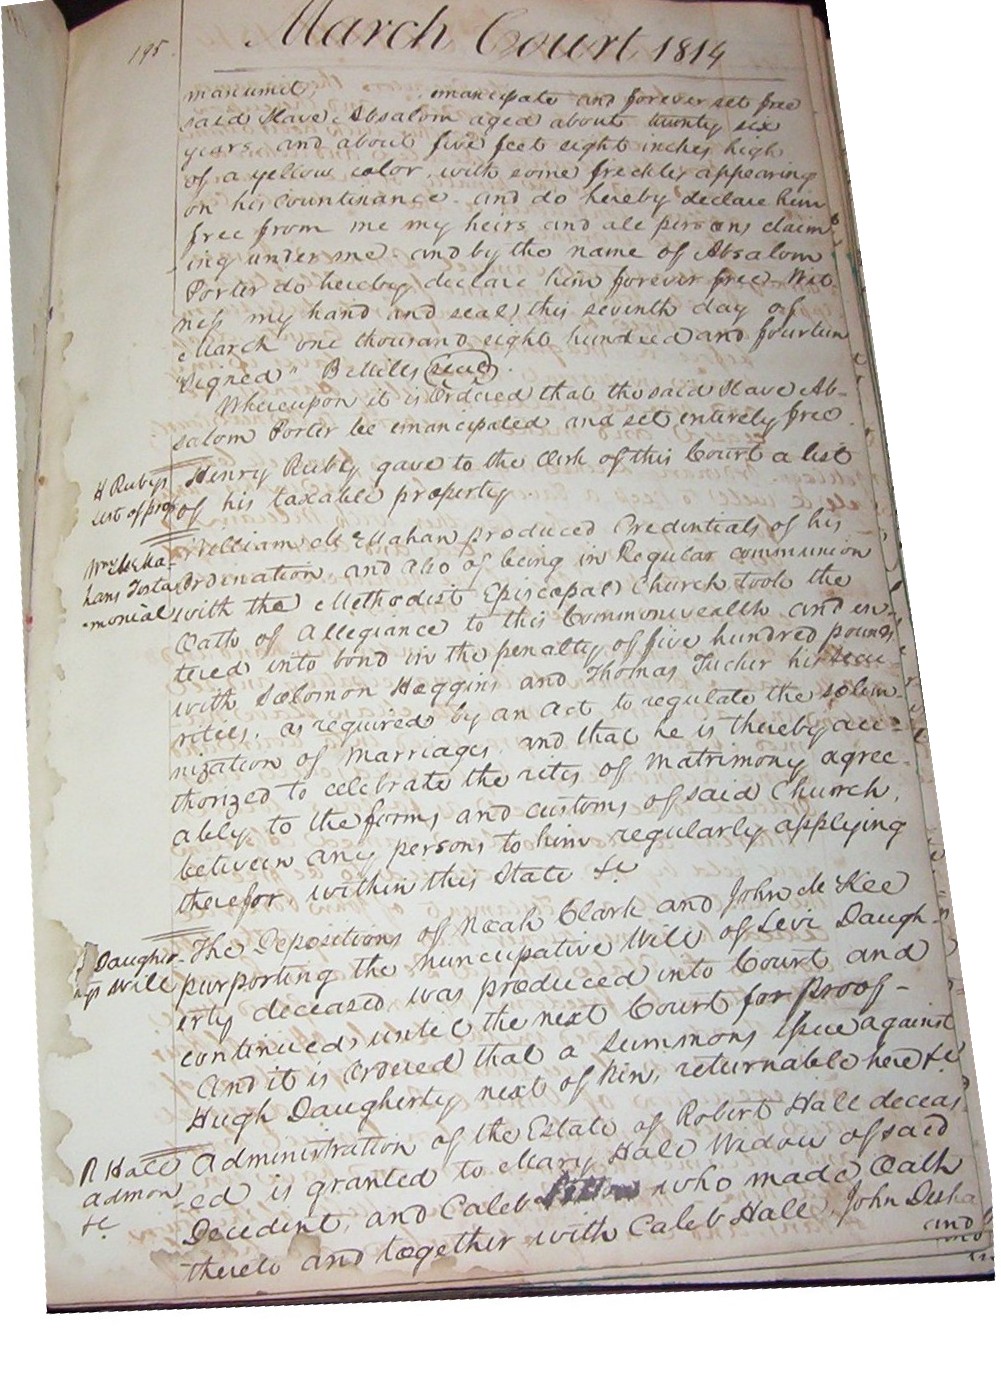 195.
March Court 1814
manumit, emancipate and forever set free
said Slave Absalom aged about twenty six
years and about five feet eight inches high
of a yellow color, with some freckles appearing
on his Countinance and do hereby declare him
free from me my heirs and all persons claim
ing under me and by the name of Absalom
Porter do hereby declare him forever free. Wit-
ness my hand and seal this seventh day of
March one thousand eight hundred and fourteen
"Signed" B Mills (seal).
Whereupon it is Ordered that the said Slave Ab-
salom Porter be emancipated and set entirely free.
H Rubys
List of prop
Henry Ruby gave to the Clerk of this Court a list
of his taxable property
Wm McMa-
hans Testa
-monial
William McMahan produced Credentials of his
Ordination and also of being in Regular communion
with the Methodist Episcopal Church took the
Oath of Allegiance to this Commonwealth and en-
tered into bond in the penalty of five hundred pounds
with Solomon Hoggins and Thomas Tucker his secu
rities, as required by an Act to regulate the solem-
nization of Marriages, and that he is thereby au-
thorized to celebrate the rites of Matrimony agree-
ably to the forms and customs of said Church,
between any persons to him regularly applying
therefor, within this State &c
Daugher-
tys Will
The Depositions of Noah Clark and John McKee
purporting the nuncupative Will of Levi Daugh-
erty deceased was produced into Court and
continued until the next Court for proof-
And it is Ordered that a Summons issue against
Hugh Daugherty next of kin, returnable here &c
R Hall
admon
&c
Administration of the Estate of Robert Hall deceas
ed is granted to Mary Hall Widow of said
Decedent, and Caleb who made Oath
thereto and together with Caleb Hall, John Desha
and